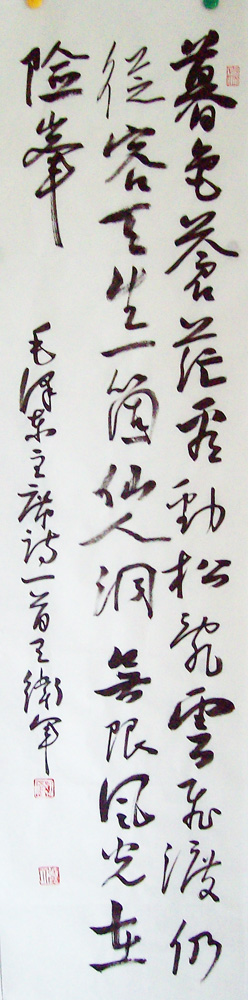 暮色蒼茫看勁松亂雲飛渡仍
從容天生一箇仙人洞無限風光在
險峯
毛澤東主席詩一首王衛軍